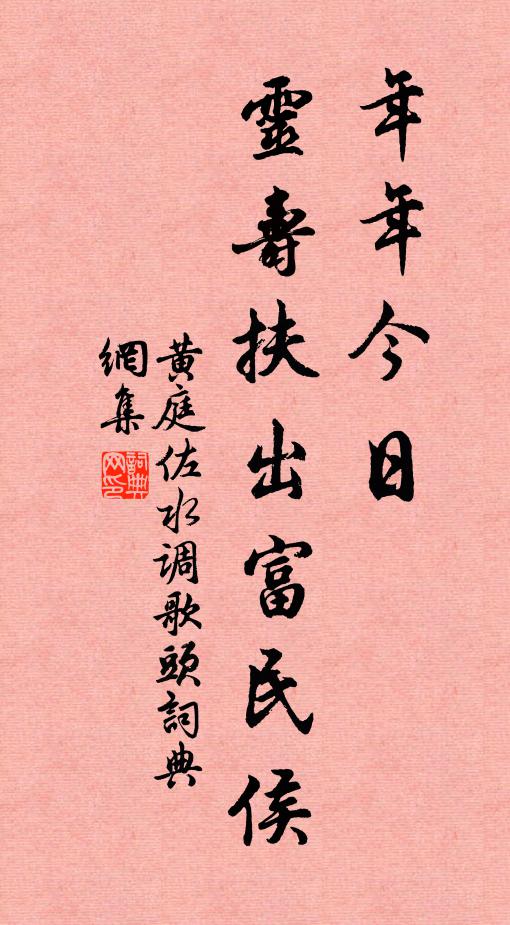 年年今日
靈壽扶出富民侯
黄庭佐水调歌頭詞典
網集
詞典网印